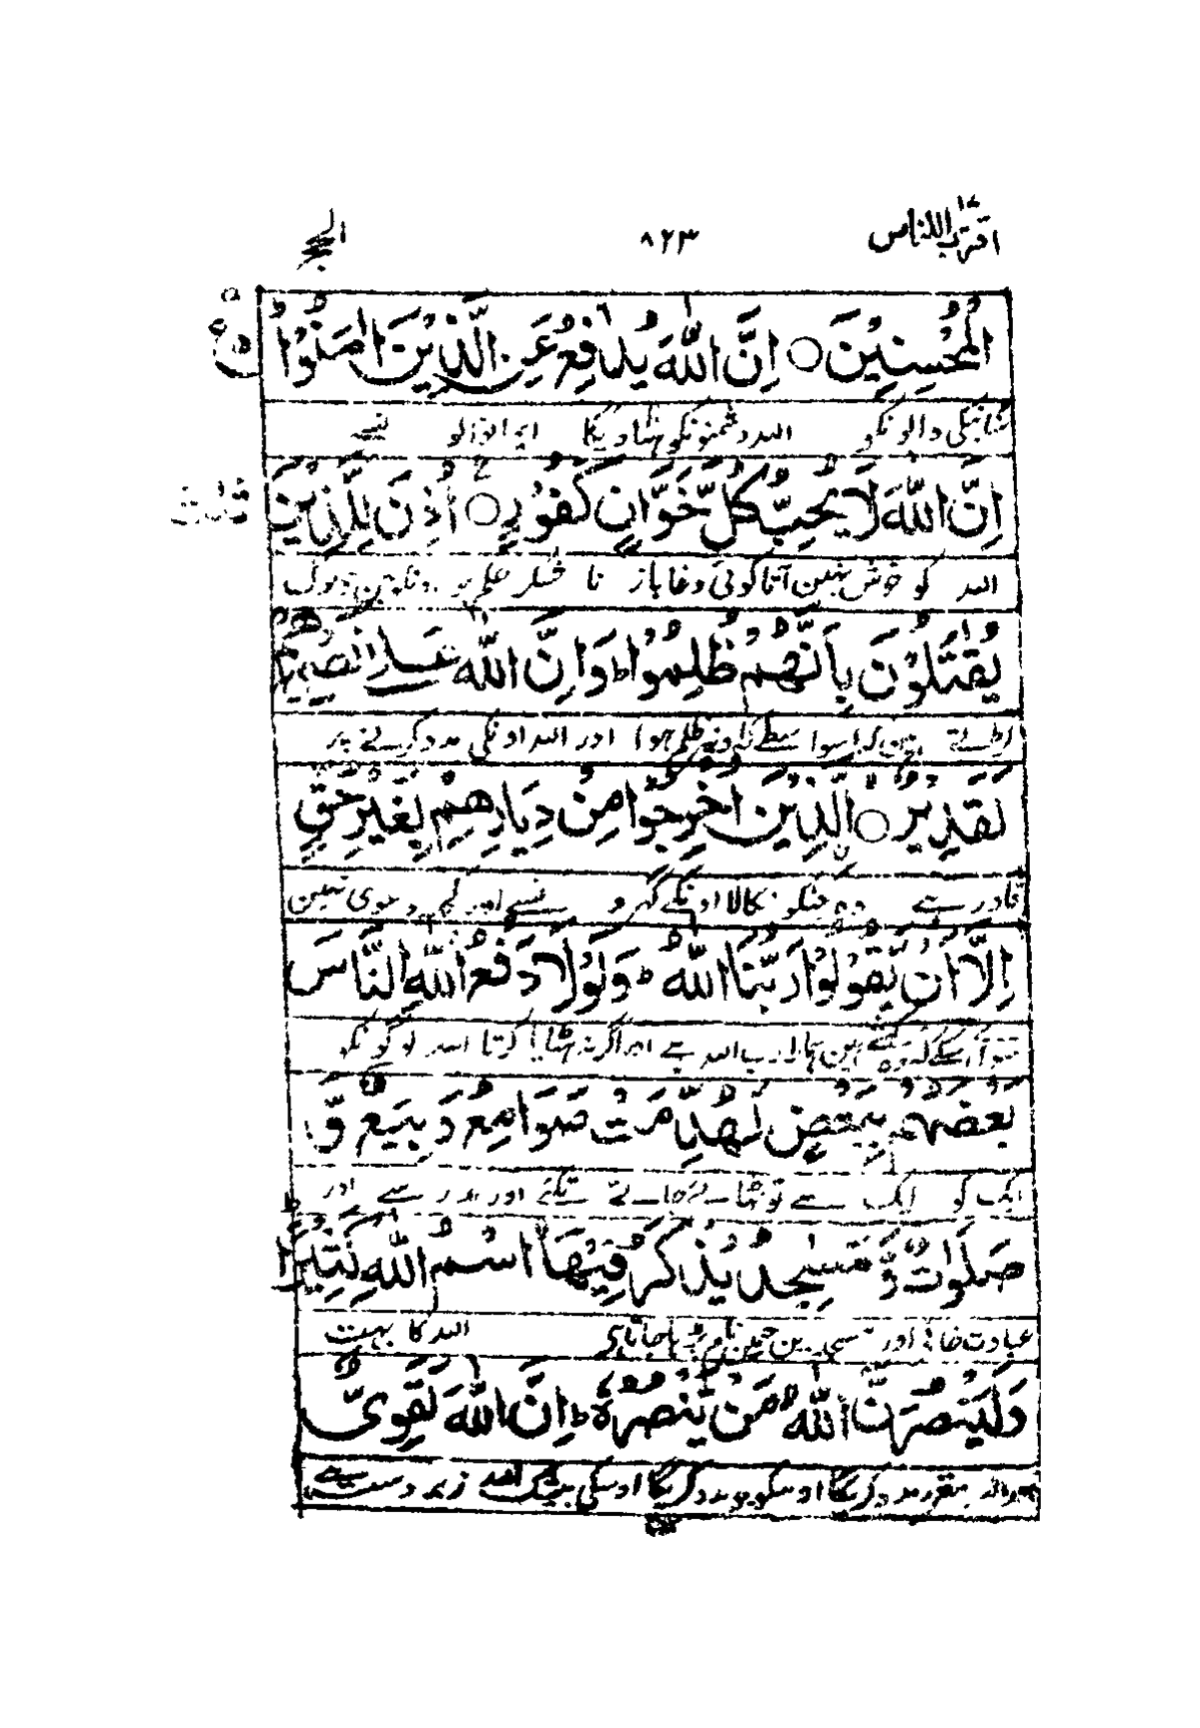 اقترب للناس ١٧
٨٢٣
الحج
الْمُحْسِنِيْنَ ○ اِنَّ اللّٰهَ يُدٰفِعُ عَنِ الَّذِيْنَ اٰمَنُوْا ؕ
نیکی والونکو اللہ دشمنونکو ہٹا دیگا ایمانوالو نسے
اِنَّ اللّٰهَ لَا يُحِبُّ كُلَّ خَوَّانٍ كَفُوْرٍ ○ اُذِنَ لِلَّذِيْنَ
اللہ کو خوش نہین آتا کوئی دغاباز نا شکر حکم ہو
يُقٰتَلُوْنَ بِاَنَّهُمْ ظُلِمُوْا ؕ وَاِنَّ اللّٰهَ عَلٰى نَصْرِهِمْ
لڑتے ہین اسواسطے کہ ونپر ظلم ہوا اور اللہ اونکی مدد کرنے پر
لَقَدِيْرٌ ○ الَّذِيْنَ اُخْرِجُوْا مِنْ دِيَارِهِمْ بِغَيْرِ حَقٍّ
قادر ہے وہ جنکو نکالا اونکے گھرو نسے اور کچھ دعوی نہین
اِلَّاۤ اَنْ يَّقُوْلُوْا رَبُّنَا اللّٰهُ ؕ وَلَوْلَا دَفْعُ اللّٰهِ النَّاسَ
سوا اسکے کہ وہ کہتے ہین ہمارا رب اللہ ہے اور اگر نہ ہٹایا کرتا اللہ لوگونکو
بَعْضَهُمْ بِبَعْضٍ لَّهُدِّمَتْ صَوَامِعُ وَبِيَعٌ وَّ
ایک کو ایک سے تو ڈھائے جاتے تکئے اور مدرسے اور
صَلَوٰتٌ وَّمَسٰجِدُ يُذْكَرُ فِيْهَا اسْمُ اللّٰهِ كَثِيْرًا ؕ
عبادت خانے اور مسجدین جنمین نام پڑہا جاتا ہی اللہ کا بہت
وَلَيَنْصُرَنَّ اللّٰهُ مَنْ يَّنْصُرُهٗ ؕ اِنَّ اللّٰهَ لَقَوِىٌّ
اور اللہ مقرر مدد کریگا اوسکو جو مدد کریگا اوسکی بیشک اللہ زبردست ہے
ع
ثلث